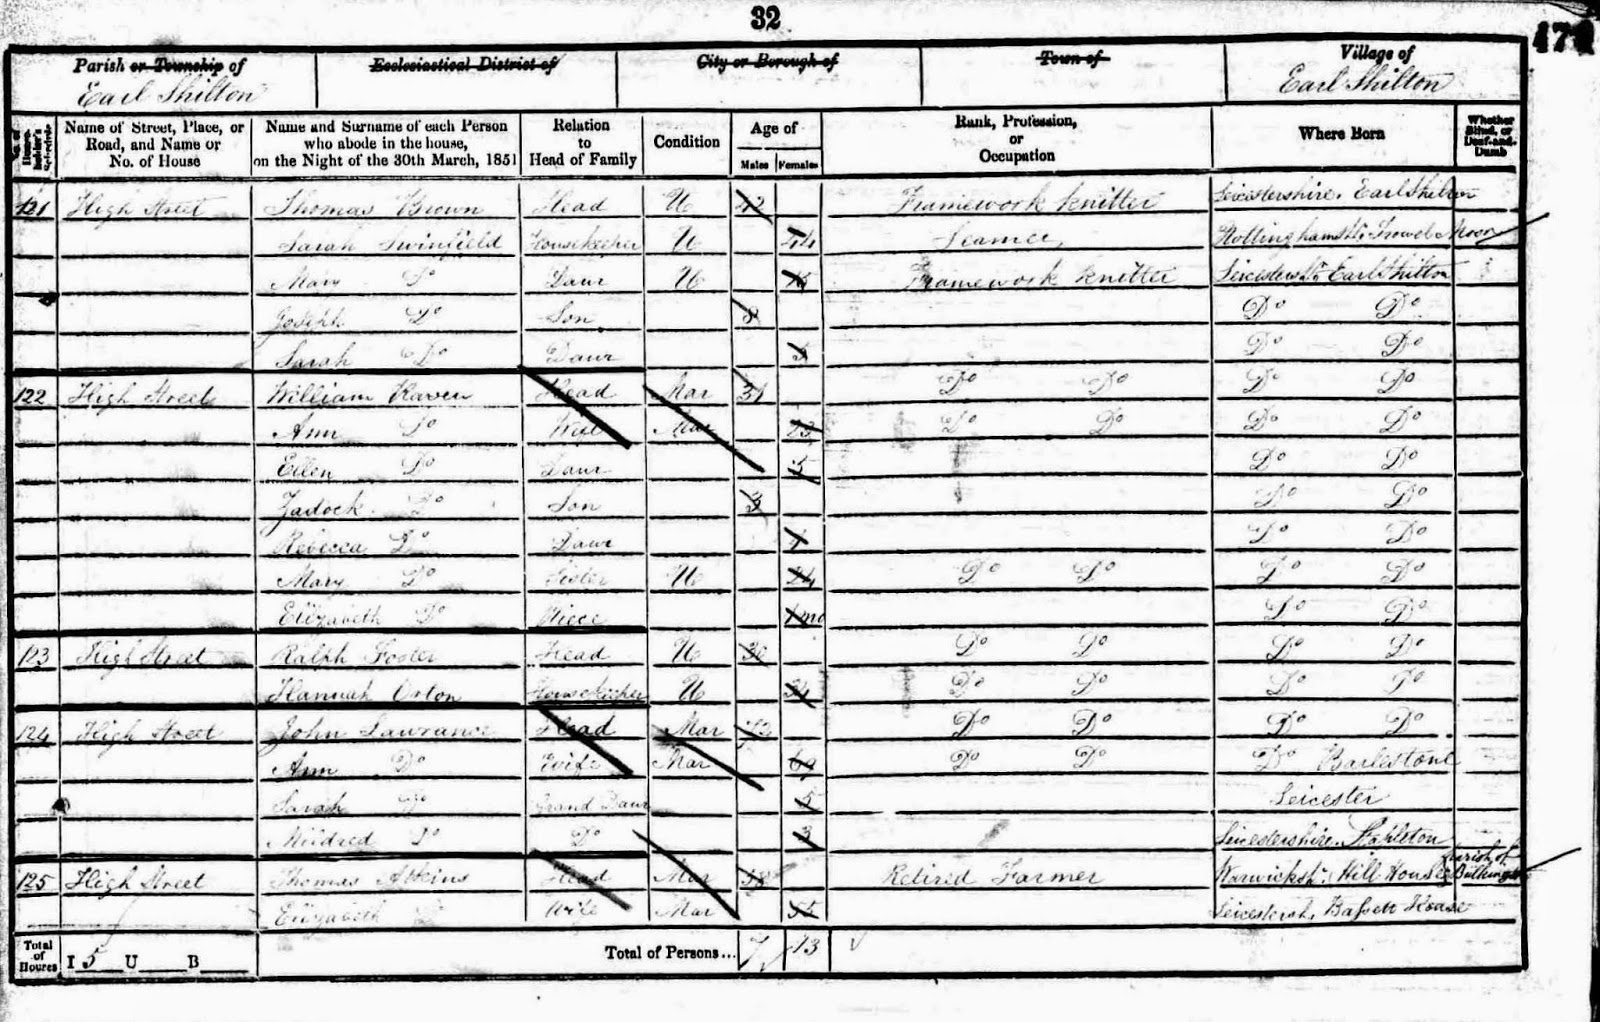 32
174
Parish or Township of
Earl Shilton
Ecclesiastical District of
City or Borough of
Town of
Village of
Earl Shilton
No. of House-holder's Schedule
Name of Street, Place, or Road, and Name or No. of House
Name and Surname of each Person who abode in the house, on the Night of the 30th March, 1851
Relation to Head of Family
Condition
Age of
Males Females
Rank, Profession, or Occupation
Where Born
Whether Blind, or Deaf-and-Dumb
121 High Street Thomas Brown Head U 42 Framework knitter Leicestershire, Earl Shilton
Sarah Swinfield Housekeeper U 44 Seamer, Nottinghamsh. Trowel Moor
Mary Do Daur U Framework knitter Leicestersh. Earl Shilton
Joseph Do Son 8 Do Do
Sarah Do Daur Do Do
122 High Street William Raven Head Mar 31 Do Do Do Do
Ann Do Wife Mar Do Do Do Do
Ellen Do Daur 5 Do Do
Zadock Do Son 3 Do Do
Rebecca Do Daur 1 Do Do
Mary Do Sister U 24 Do Do Do Do
Elizabeth Do Niece 1 mo Do Do
123 High Street Ralph Foster Head U 30 Do Do Do Do
Hannah Orton Housekeeper U Do Do Do Do
124 High Street John Lawrance Head Mar Do Do Do Do
Ann Do Wife Mar 69 Do Do Do Barlestone
Sarah Do Grand Daur 5 Leicester
Mildred Do Do 3 Leicestershire, Stapleton
125 High Street Thomas Atkins Head Mar Retired Farmer Warwicksh. Hill House Parish of Bulkington
Elizabeth Do Wife Mar 55 Leicestersh. Bassett House
Total of Houses I 5 U B Total of Persons... 7 13